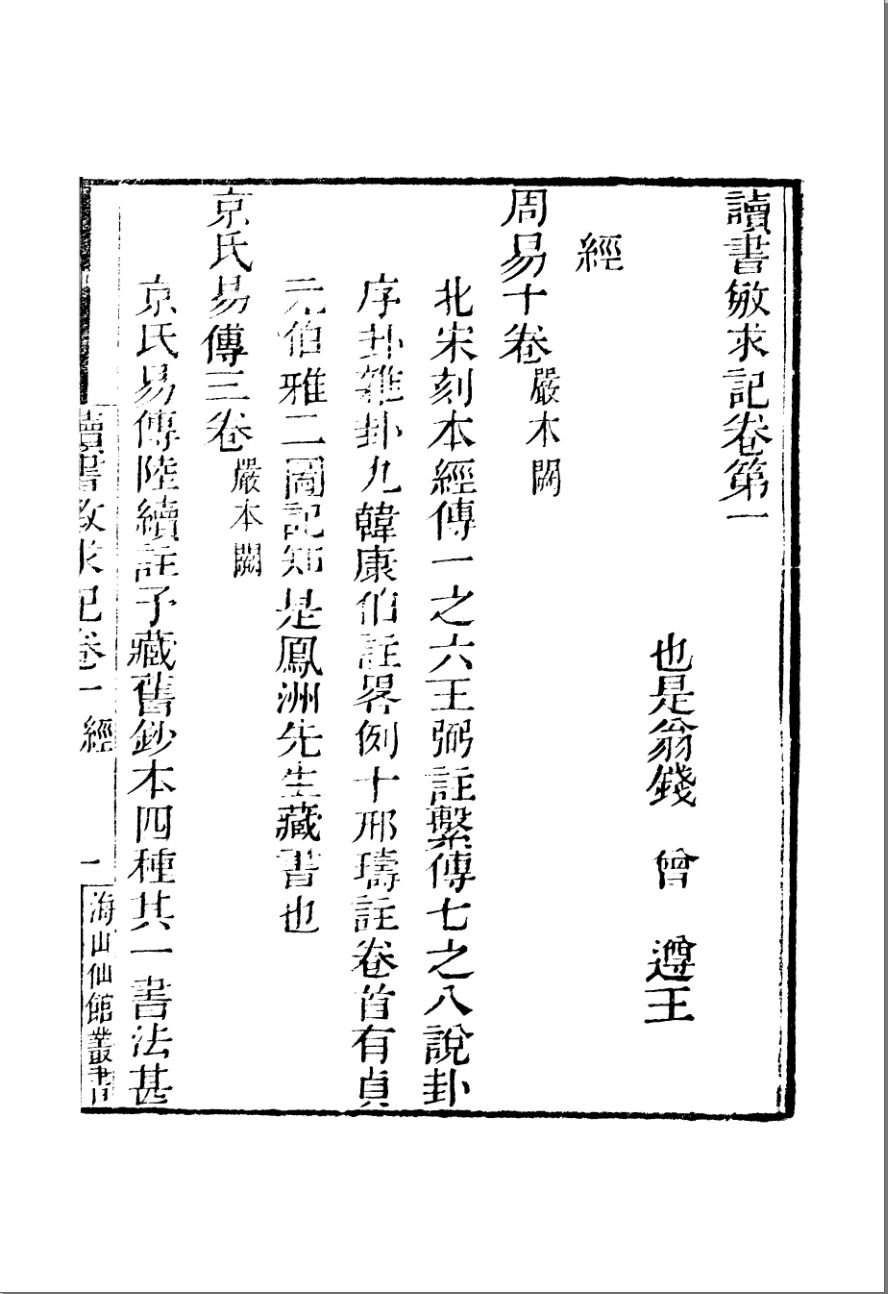 讀書敏求記卷第一
也是翁錢　曾　遵王
經
周易十卷嚴本闕
北宋刻本經傳一之六王弼註繫傳七之八說卦
序卦雜卦九韓康伯註畧例十邢璹註卷首有貞
元伯雅二圖記知是鳳洲先生藏書也
京氏易傳三卷嚴本闕
京氏易傳陸續註予藏舊鈔本四種其一書法甚
讀書敏求記卷一 經　一　海山仙館叢書